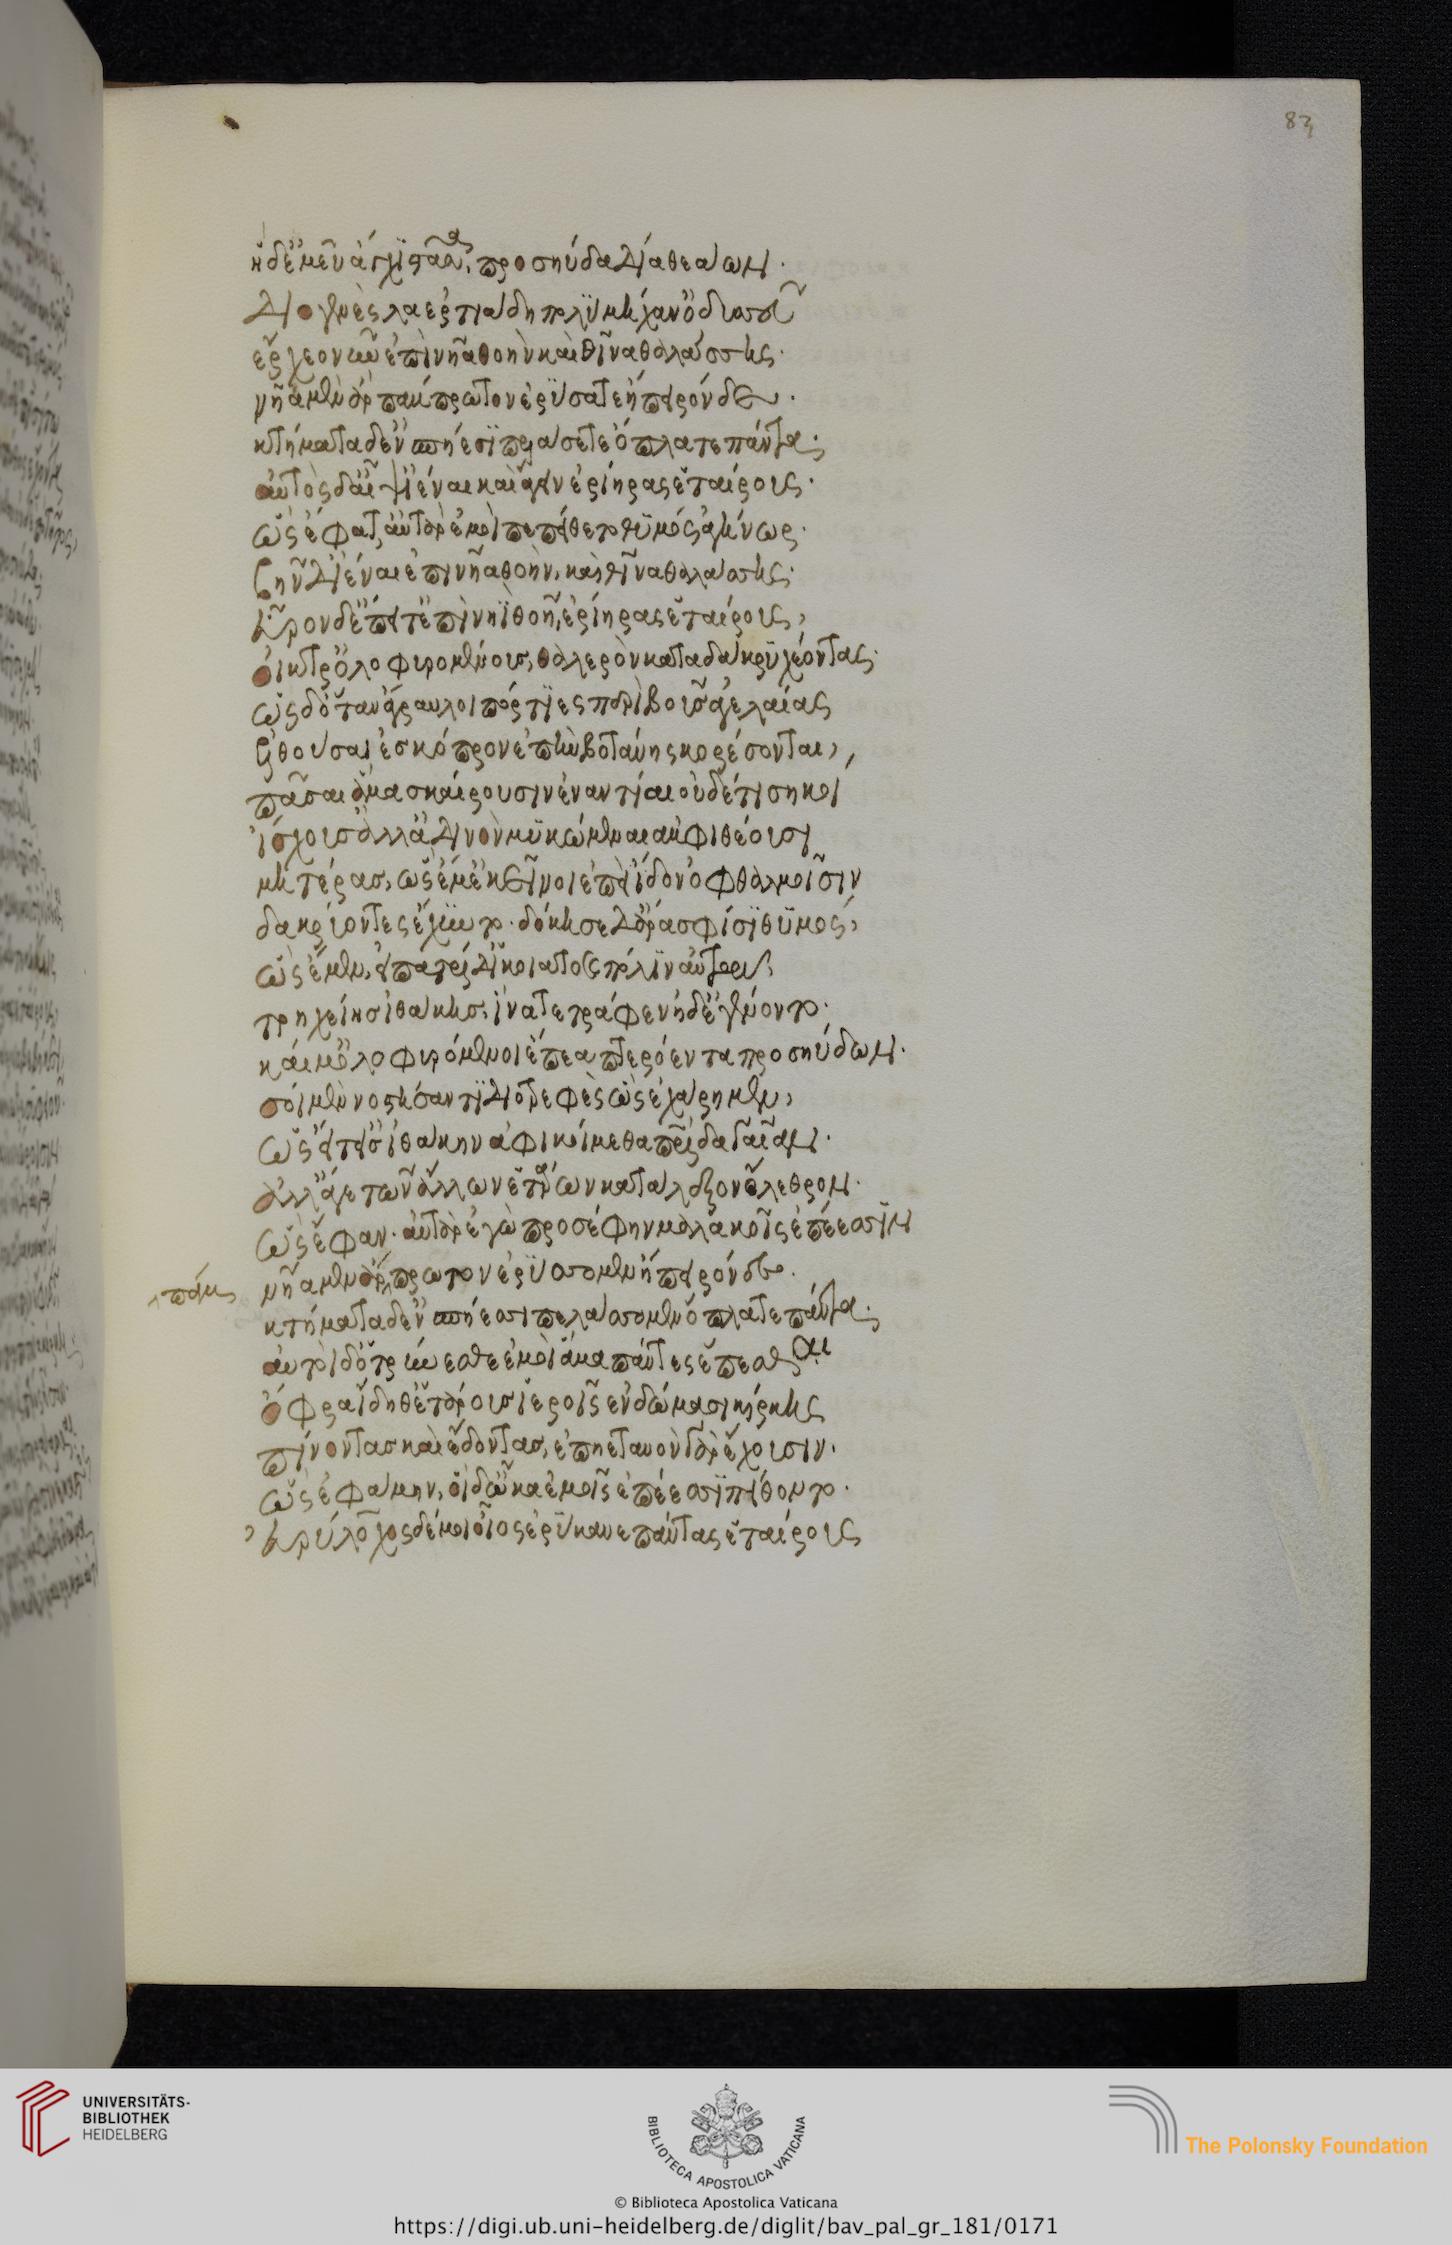 83
ἡ δέ μευ ἄγχι στᾶσα, προσηύδα δῖα θεάων.
διογενὲς λαερτιάδη πολυμήχαν' ὀδυσσεῦ
ἔρχεο νῦν ἐπὶ νῆα θοὴν καὶ θῖνα θαλάσσης.
νῆα μὲν ἂρ πάμπρωτον ἐρύσατε ἤπειρόνδε.
κτήματα δ' ἐν σπήεσι πελάσσετε ὅπλα τε πάντα.
αὐτὸς δ' ἂψ ἰέναι καὶ ἄγειν ἐρίηρας ἑταίρους.
ὣς ἔφατ', αὐτὰρ ἐμοὶ πεπείθετο θυμὸς ἀγήνωρ.
βῆν δ' ἰέναι ἐπὶ νῆα θοὴν, καὶ θῖνα θαλάσσης.
εὗρον δ' ἔπειτ' ἐπὶ νηῒ θοῇ, ἐρίηρας ἑταίρους,
οἴκτρ' ὀλοφυρομένους, θαλερὸν κατὰ δάκρυ χέοντας.
ὡς δ' ὅταν ἄγραυλοι πόρτιες περὶ βοῦς ἀγελαίας
ἐλθούσας ἐς κόπρον ἐπὴν βοτάνης κορέσονται,
πᾶσαι ἅμα σκαίρουσιν ἐναντίαι οὐδέ τι σηκοὶ
ἴσχουσ' ἀλλ' ἁδινὸν μυκώμεναι ἀμφιθέουσι
μητέρας, ὣς ἐμὲ κεῖνοι ἐπεὶ ἴδον ὀφθαλμοῖσιν
δακρυόεντες ἔχυντο. δόκησε δ' ἄρα σφίσι θυμὸς,
ὣς ἔμεν, εἰ πατρίδ' ἵκοιατο καὶ πόλιν αὐτὴν
τρηχείης ἰθάκης, ἵνα τε τράφεν ἠδ' ἐγένοντο.
καί μ' ὀλοφυρόμενοι ἔπεα πτερόεντα προσηύδων.
σοὶ μὲν νοστήσαντι διοτρεφὲς ὣς ἐχάρημεν,
ὡς εἴ τ' εἰς ἰθάκην ἀφικοίμεθα πατρίδα γαῖαν.
ἀλλ' ἄγε τῶν ἄλλων ἑτάρων κατάλεξον ὄλεθρον.
ὣς ἔφαν. αὐτὰρ ἐγὼ προσέφην μαλακοῖς ἐπέεσσιν
νῆα μὲν ἂρ πρῶτον ἐρύσσομεν ἤπειρόνδε.
πάμ
κτήματα δ' ἐν σπήεσσι πελάσσομεν ὅπλα τε πάντα.
αὐτοὶ δ' ὀτρύνεσθε ἐμοὶ ἅμα πάντες ἕπεσθαι
ὄφρα ἴδηθ' ἑτάρους ἱεροῖς ἐν δώμασι κίρκης
πίνοντας καὶ ἔδοντας, ἐπηετανὸν γὰρ ἔχουσιν.
ὣς ἐφάμην, οἱ δ' ὦκα ἐμοῖς ἐπέεσσι πείθοντο.
εὐρύλοχος δέ μοι οἶος ἐρύκανε πάντας ἑταίρους
UNIVERSITÄTS-
BIBLIOTHEK
HEIDELBERG
BIBLIOTECA APOSTOLICA VATICANA
The Polonsky Foundation
© Biblioteca Apostolica Vaticana
https://digi.ub.uni-heidelberg.de/diglit/bav_pal_gr_181/0171